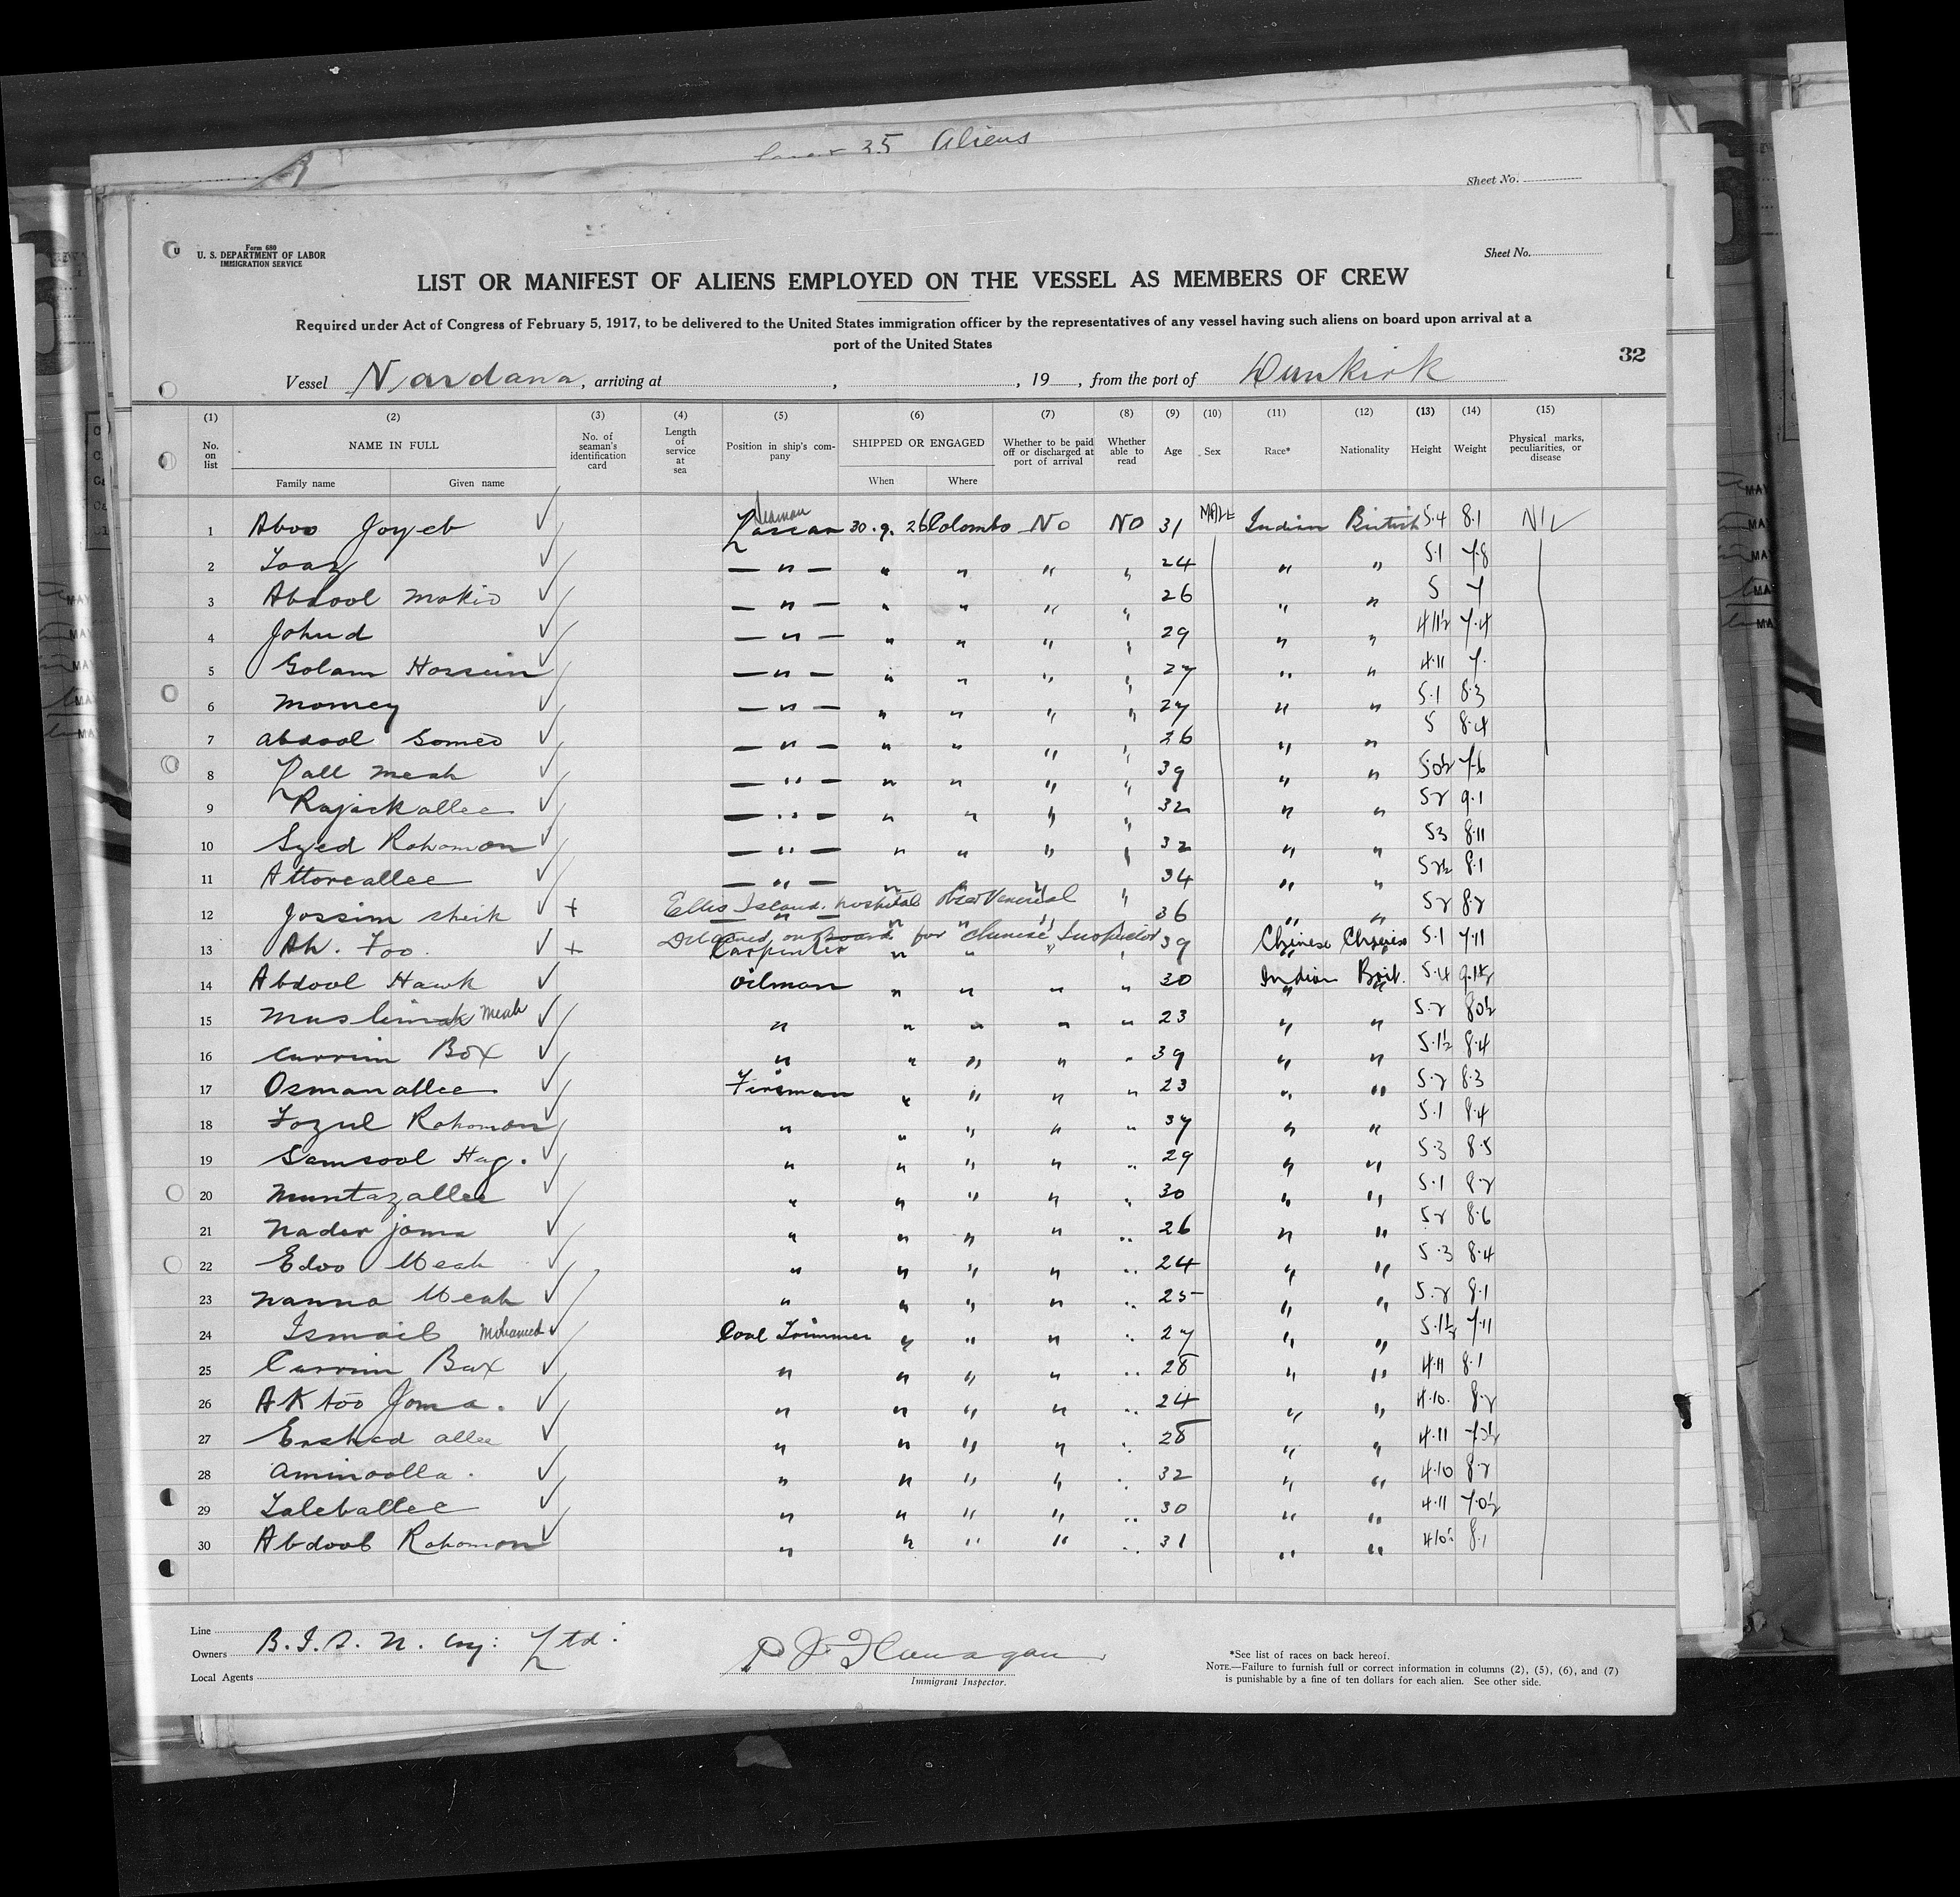 35 Aliens
Sheet No.
Form 680
U. S. DEPARTMENT OF LABOR
IMMIGRATION SERVICE
Sheet No.
LIST OR MANIFEST OF ALIENS EMPLOYED ON THE VESSEL AS MEMBERS OF CREW
Required under Act of Congress of February 5, 1917, to be delivered to the United States immigration officer by the representatives of any vessel having such aliens on board upon arrival at a
port of the United States
32
Vessel Nardana, arriving at , , 19 , from the port of Dunkirk
(1) (2) (3) (4) (5) (6) (7) (8) (9) (10) (11) (12) (13) (14) (15)
No. on list NAME IN FULL No. of seaman's identification card Length of service at sea Position in ship's company SHIPPED OR ENGAGED Whether to be paid off or discharged at port of arrival Whether able to read Age Sex Race* Nationality Height Weight Physical marks, peculiarities, or disease
Family name Given name When Where
Seaman
1 Aboo Joyeb ✓ Lascar 30.9.26 Colombo No NO 31 MALE Indian British 5.4 8.1 NIL
2 ✓ — " — " " " " 24 " " 5.1 7.8
3 Abdool ✓ — " — " " " " 26 " " 5 7
4 ✓ — " — " " " " 29 " " 4 11½ 7.4
5 Golam Hossein ✓ — " — " " " " 27 " " 4.11 7.
6 Momey ✓ — " — " " " " 27 " " 5.1 8.3
7 Abdool Somed ✓ — " — " " " " 26 " " 5 8.4
8 Lall Meah ✓ — " — " " " " 39 " " 5.0½ 7.6
9 Rajackallee ✓ — " — " " " " 32 " " 5 2 9.1
10 Syed Rohomon ✓ — " — " " " " 32 " " 5 3 8.11
11 Attoreallee ✓ — " — " " " " 34 " " 5 2½ 8.1
12 Jossim Sheik ✓ + Ellis Island hospital Venereal " 36 " " 5 2 8.2
13 Ah. Foo. ✓ + Detained on board for Chinese Inspector
Carpenter " " " " 39 Chinese Chinese 5.1 7.11
14 Abdool Hawk ✓ Oilman " " " " 30 Indian Brit. 5.4 9.1½
15 Muslim Meah ✓ " " " " " 23 " " 5.2 8 0½
16 Currim Box ✓ " " " " " 39 " " 5.1½ 8.4
17 Osmanallee ✓ Fireman " " " " 23 " " 5.2 8.3
18 Fozul Rohomon ✓ " " " " " 37 " " 5.1 8.4
19 Samsool Hug. ✓ " " " " " 29 " " 5.3 8.5
20 Muntazallee ✓ " " " " " 30 " " 5.1 8.2
21 Nader joma ✓ " " " " " 26 " " 5 2 8.6
22 Edoo Meah ✓ " " " " " 24 " " 5.3 8.4
23 Nanna Meah ✓ " " " " " 25 " " 5.2 8.1
24 Ismail Mohamed ✓ Coal Trimmer " " " " 27 " " 5.1½ 7.11
25 Currim Bux ✓ " " " " " 28 " " 4.11 8.1
26 Aktoo Joma. ✓ " " " " " 24 " " 4.10. 8.2
27 Ershad allee ✓ " " " " " 28 " " 4.11
28 Aminoolla. ✓ " " " " " 32 " " 4.10 8.2
29 Taleballee ✓ " " " " " 30 " " 4.11 7.0½
30 Abdool Rohomon ✓ " " " " " 31 " " 4 10½ 8.1
Line
Owners B. I. S. N. Coy: Ltd:
Local Agents
P J Flanagan
Immigrant Inspector.
*See list of races on back hereof.
NOTE.—Failure to furnish full or correct information in columns (2), (5), (6), and (7)
is punishable by a fine of ten dollars for each alien. See other side.